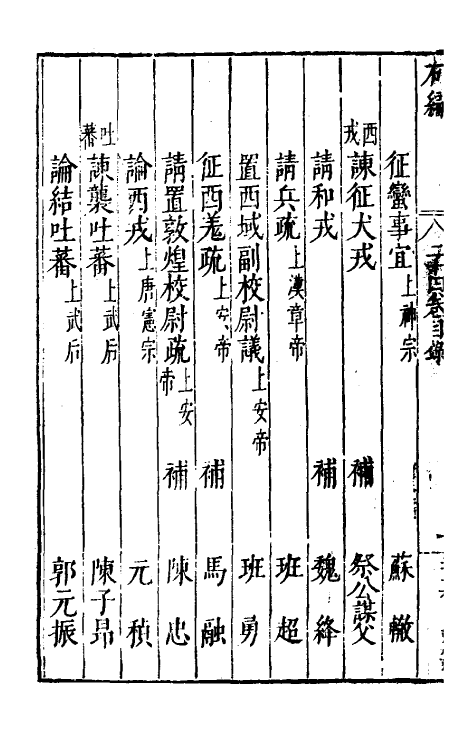 右編 二十四卷目錄
征蠻事宜上神宗 蘇轍
西戎 諫征犬戎 補 祭公謀父
請和戎 補 魏絳
請兵疏上漢章帝 班超
置西域副校尉議上安帝 班勇
征西羌疏上安帝 補 馬融
請置敦煌校尉疏上安帝 補 陳忠
論西戎上唐憲宗 元稹
吐蕃 諫襲吐蕃上武后 陳子昂
論結吐蕃上武后 郭元振